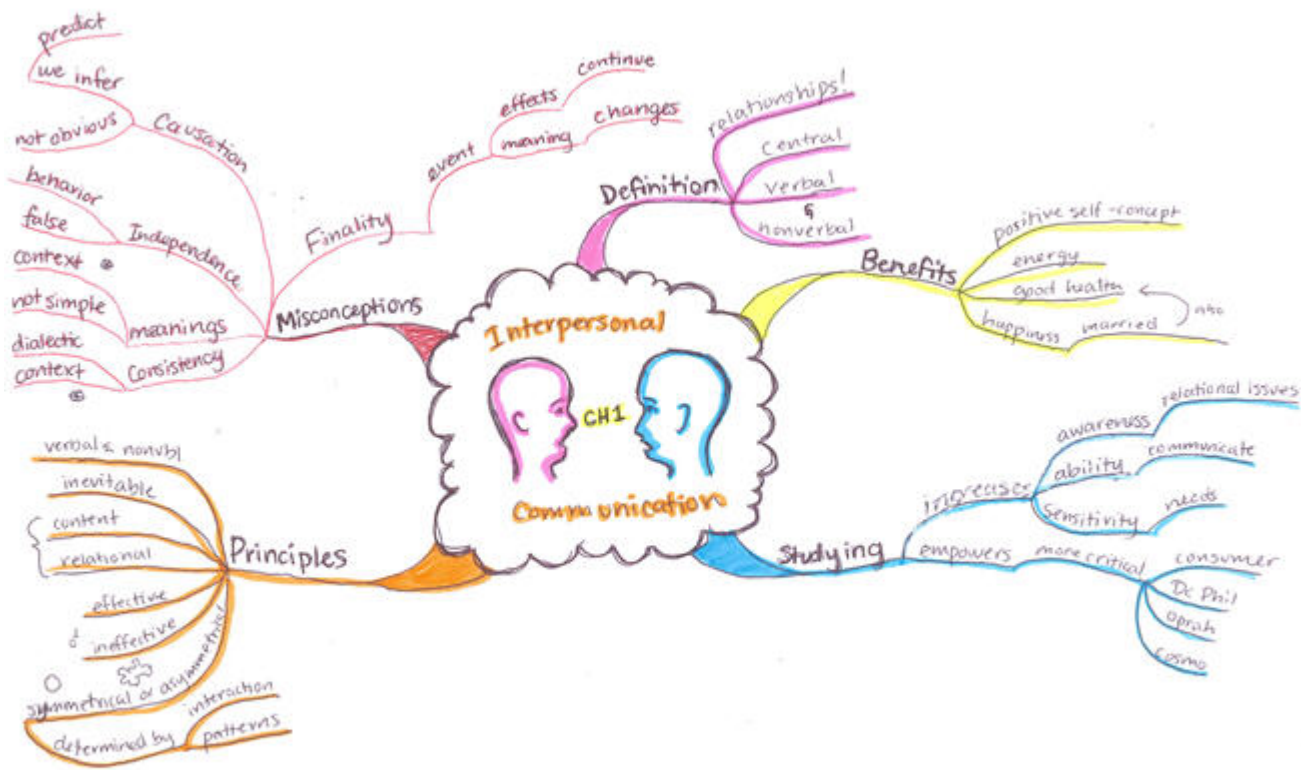 Interpersonal
CH1
Communication
Definition
relationships!
central
verbal
&
nonverbal
Benefits
positive self-concept
energy
good health
happiness
married
also
Studying
increases
awareness
relational issues
ability
communicate
sensitivity
needs
empowers
more critical
consumer
Dr Phil
oprah
cosmo
Principles
verbal & nonvbl
inevitable
content
relational
effective
ineffective
symmetrical or asymmetrical
determined by
interaction
patterns
Misconceptions
Causation
predict
we infer
not obvious
Independence
behavior
false
meanings
context
not simple
Consistency
dialectic
context
Finality
event
effects
continue
meaning
changes